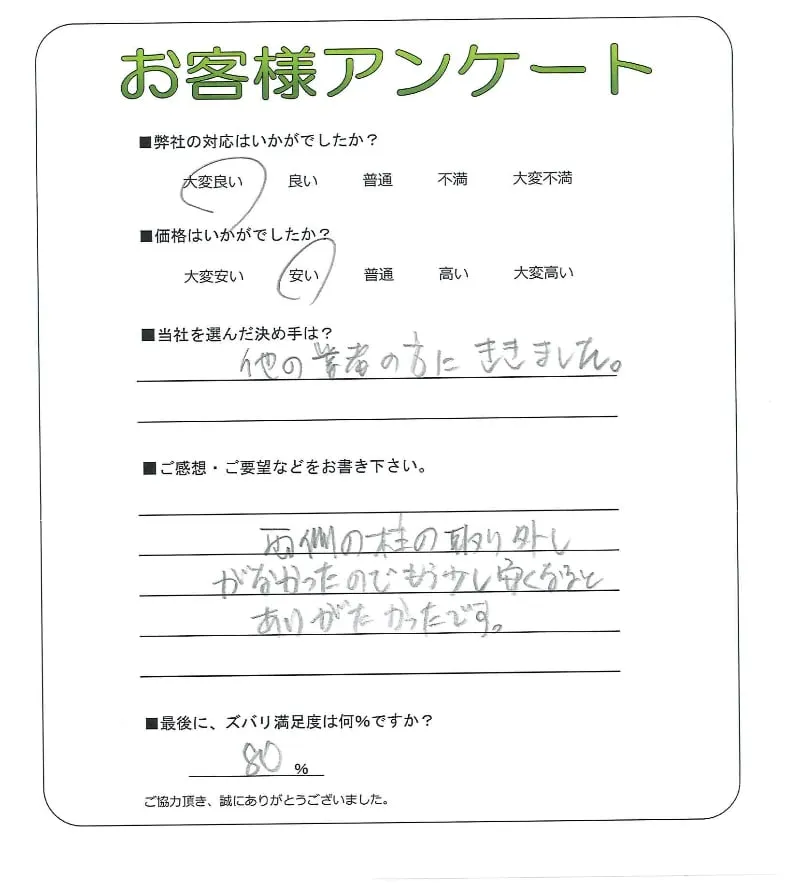 お客様アンケート
■弊社の対応はいかがでしたか？
大変良い 良い 普通 不満 大変不満
■価格はいかがでしたか？
大変安い 安い 普通 高い 大変高い
■当社を選んだ決め手は？
他の業者の方にききました。
■ご感想・ご要望などをお書き下さい。
両側の柱の取り外し
がなかったのでもう少し安くなると
ありがたかったです。
■最後に、ズバリ満足度は何％ですか？
80 %
ご協力頂き、誠にありがとうございました。